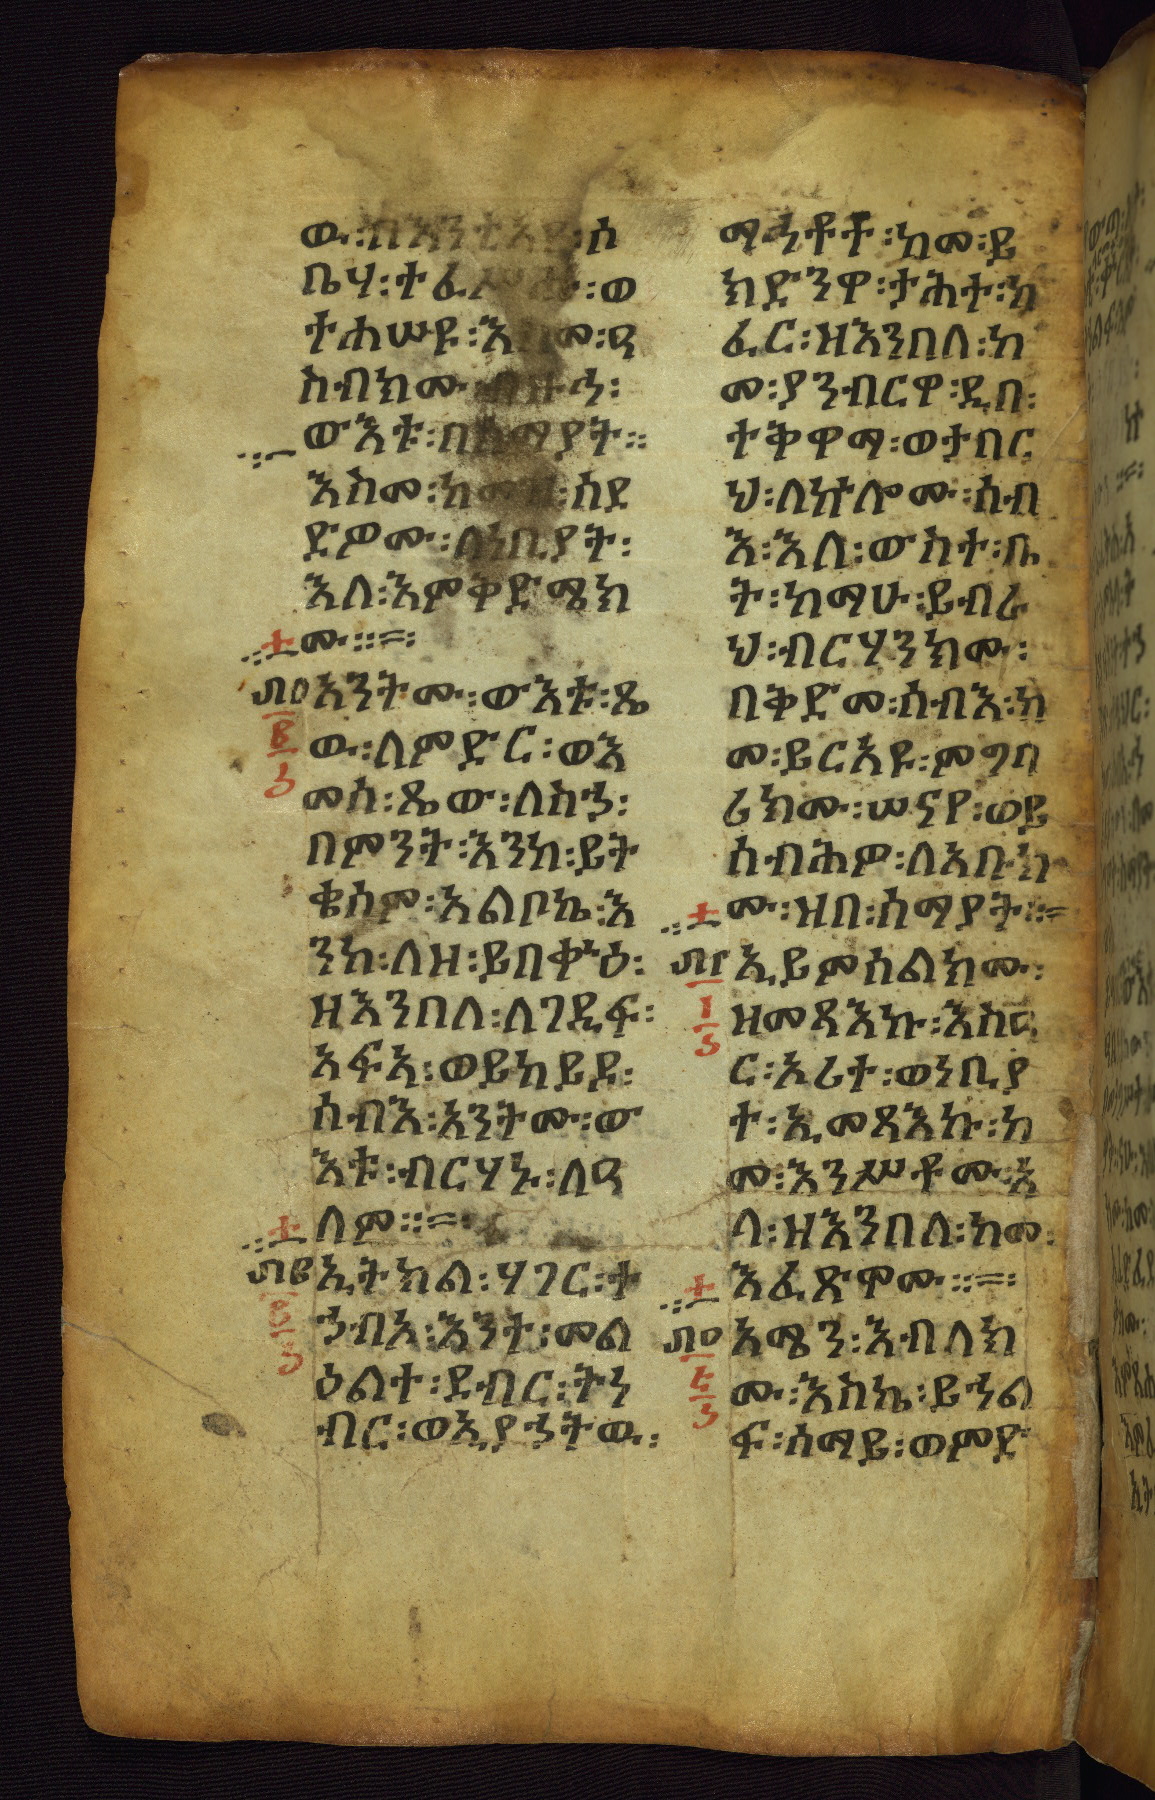 ው፡በእንተአየ፡ሰ
ቤሃ፡ተፈሥሑ፡ወ
ተሐሠዩ፡እስመ፡ዓ
ስብክሙ፡ብዙኅ፡
ውእቱ፡በሰማያት።
እስመ፡ከመዝ፡ሰደ
ድዎሙ፡ለነቢያት፡
እለ፡እምቀድሜክ
ሙ።=፡
አንትሙ፡ውእቱ፡ጼ
ው፡ለምድር፡ወእ
መሰ፡ጼው፡ለስኅ፡
በምንት፡እንከ፡ይት
ቄሰም፡አልቦኬ፡እ
ንከ፡ለዘ፡ይበቍዕ፡
ዘእንበለ፡ለገዲፍ፡
አፍአ፡ወይከይዶ፡
ሰብእ፡አንትሙ፡ው
እቱ፡ብርሃኑ፡ለዓ
ለም።=፡
ኢትክል፡ሃገር፡ተ
ኀብአ፡እንተ፡መል
ዕልተ፡ደብር፡ትነ
ብር፡ወኢያኅትዉ፡
ማኅቶተ፡ከመ፡ይ
ክድንዋ፡ታሕተ፡ከ
ፈር፡ዝእንበለ፡ከ
መ፡ያንብርዋ፡ዲበ፡
ተቅዋማ፡ወታበር
ህ፡ለኵሎሙ፡ሰብ
እ፡እለ፡ውስተ፡ቤ
ት፡ከማሁ፡ይብራ
ህ፡ብርሃንክሙ፡
በቅድመ፡ሰብእ፡ከ
መ፡ይርአዩ፡ምግባ
ሪክሙ፡ሠናየ፡ወይ
ሰብሕዎ፡ለአቡክ
ሙ፡ዝበ፡ሰማያት።=
፲፫ ኢይምሰልክሙ፡
ዝመጻእኩ፡እስዐ
ር፡አሪተ፡ወነቢያ
ተ፡ኢመጻእኩ፡ከ
መ፡እንሥቶሙ፡አ
ላ፡ዘእንበለ፡ከመ፡
እፈጽሞሙ።=፡
አሜን፡እብለክ
ሙ፡እስኬ፡ይኀል
ፍ፡ሰማይ፡ወምድ